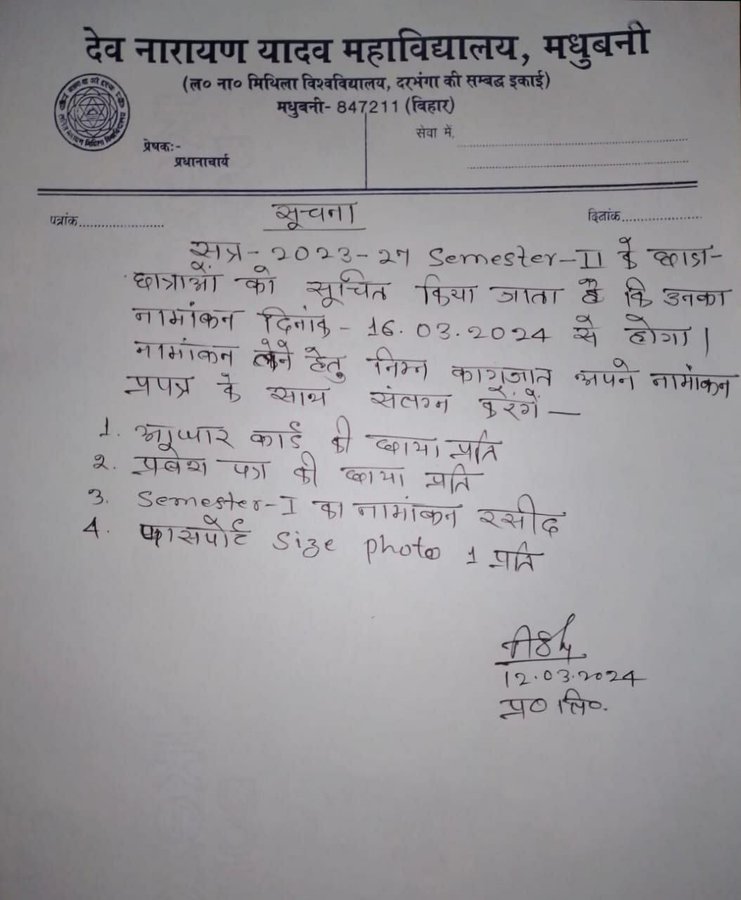 देव नारायण यादव महाविद्यालय, मधुबनी
(ल० ना० मिथिला विश्वविद्यालय, दरभंगा की सम्बद्ध इकाई)
मधुबनी- 847211 (बिहार)
प्रेषकः-
प्रधानाचार्य
सेवा में,
पत्रांक
दिनांक
सूचना
सत्र - 2023-27 Semester-II के छात्र-
छात्राओं को सूचित किया जाता है कि उनका
नामांकन दिनांक - 16.03.2024 से होगा।
नामांकन लेने हेतु निम्न कागजात अपने नामांकन
प्रपत्र के साथ संलग्न करेंगें —
1. आधार कार्ड की छाया प्रति
2. प्रवेश पत्र की छाया प्रति
3. Semester-I का नामांकन रसीद
4. पासपोर्ट Size photo 1 प्रति
12.03.2024